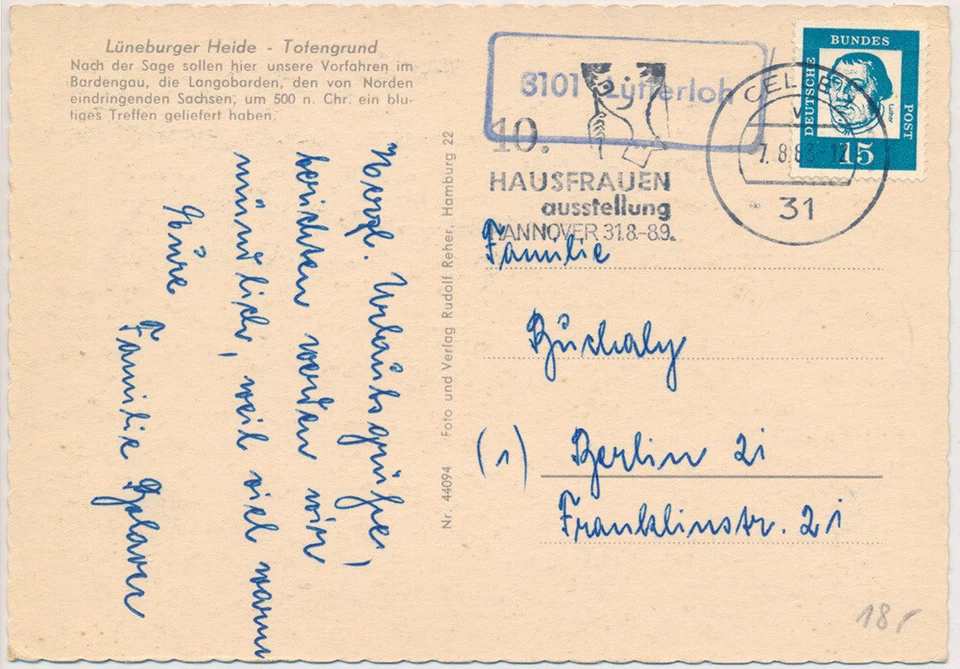 Lüneburger Heide - Totengrund
Nach der Sage sollen hier unsere Vorfahren im
Bardengau, die Langobarden, den von Norden
eindringenden Sachsen, um 500 n. Chr. ein blu-
tiges Treffen geliefert haben.
Herzl. Urlaubsgrüße,
berichten werden wir
mündlich, weil viel wenn
Eure
Familie
Nr. 44094 Foto und Verlag Rudolf Reher, Hamburg 22
3101 Lutterloh
10.
HAUSFRAUEN
ausstellung
HANNOVER 31.8.-8.9.
CELLE
7.8.63-12
31
DEUTSCHE
BUNDES
POST
15
Familie
Büchaly
(1) Berlin 21
Franklinstr. 21
18,-